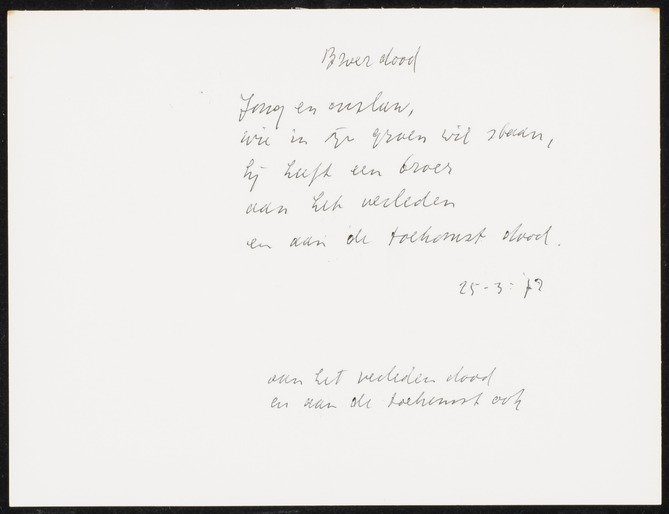 Broer dood
Jong en
wie in zijn groen wil staan,
hij heeft een broer
aan het verleden
en aan de toekomst dood.
25-3-'72
aan het verleden dood
en aan de toekomst ook